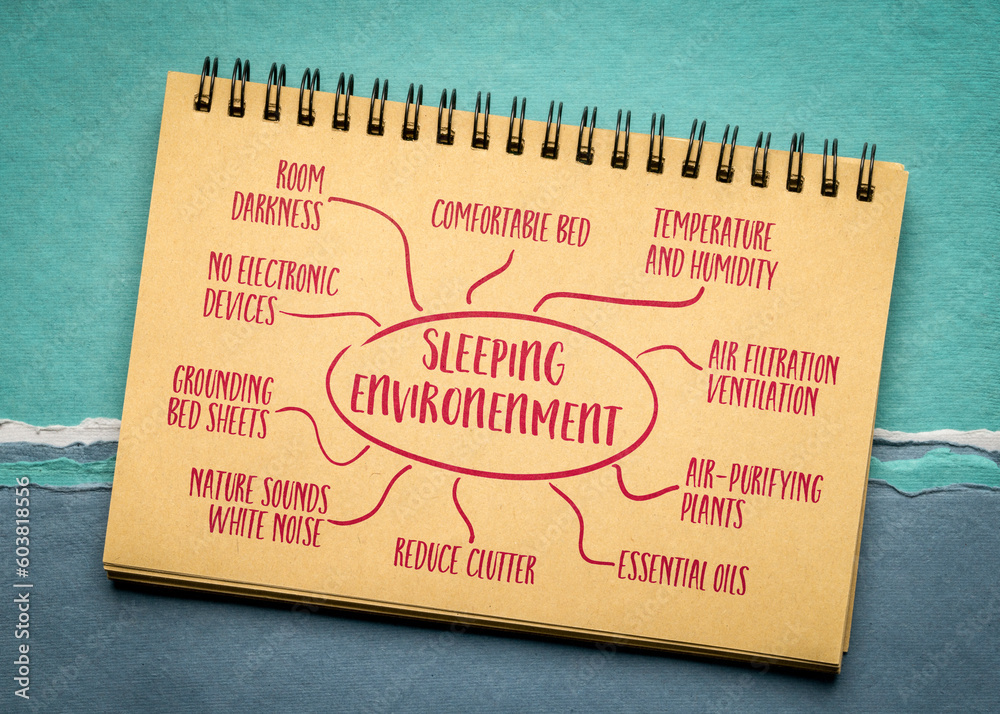 ROOM
DARKNESS
COMFORTABLE BED
TEMPERATURE
AND HUMIDITY
NO ELECTRONIC
DEVICES
SLEEPING
ENVIRONENMENT
AIR FILTRATION
VENTILATION
GROUNDING
BED SHEETS
AIR-PURIFYING
PLANTS
NATURE SOUNDS
WHITE NOISE
REDUCE CLUTTER
ESSENTIAL OILS
Adobe Stock | #603818556